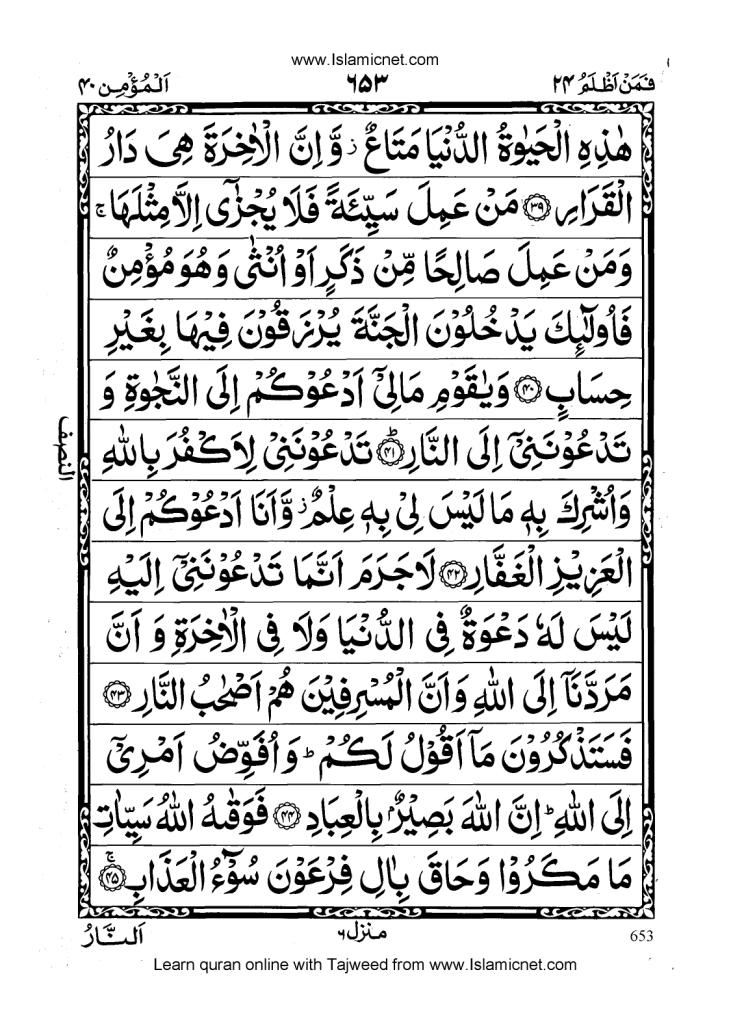 www.Islamicnet.com
فَمَنْ اَظْلَمُ ٢٤
٦٥٣
اَلْمُؤْمِن ٤٠
هٰذِهِ الْحَيٰوةُ الدُّنْيَا مَتَاعٌ ز وَّاِنَّ الْاٰخِرَةَ هِيَ دَارُ
الْقَرَارِ ٣٩ مَنْ عَمِلَ سَيِّئَةً فَلَا يُجْزٰٓى اِلَّا مِثْلَهَا ج
وَمَنْ عَمِلَ صَالِحًا مِّنْ ذَكَرٍ اَوْ اُنْثٰى وَهُوَ مُؤْمِنٌ
فَاُولٰٓئِكَ يَدْخُلُوْنَ الْجَنَّةَ يُرْزَقُوْنَ فِيْهَا بِغَيْرِ
حِسَابٍ ٤٠ وَيٰقَوْمِ مَالِيْٓ اَدْعُوْكُمْ اِلَى النَّجٰوةِ وَ
تَدْعُوْنَنِيْٓ اِلَى النَّارِ ط ٤١ تَدْعُوْنَنِيْ لِاَكْفُرَ بِاللّٰهِ
النصف
وَاُشْرِكَ بِهٖ مَا لَيْسَ لِيْ بِهٖ عِلْمٌ ز وَّاَنَا اَدْعُوْكُمْ اِلَى
الْعَزِيْزِ الْغَفَّارِ ٤٢ لَا جَرَمَ اَنَّمَا تَدْعُوْنَنِيْٓ اِلَيْهِ
لَيْسَ لَهٗ دَعْوَةٌ فِي الدُّنْيَا وَلَا فِي الْاٰخِرَةِ وَ اَنَّ
مَرَدَّنَآ اِلَى اللّٰهِ وَاَنَّ الْمُسْرِفِيْنَ هُمْ اَصْحٰبُ النَّارِ ٤٣
فَسَتَذْكُرُوْنَ مَآ اَقُوْلُ لَكُمْ ط وَاُفَوِّضُ اَمْرِيْٓ
اِلَى اللّٰهِ ط اِنَّ اللّٰهَ بَصِيْرٌۢ بِالْعِبَادِ ٤٤ فَوَقٰىهُ اللّٰهُ سَيِّاٰتِ
مَا مَكَرُوْا وَحَاقَ بِاٰلِ فِرْعَوْنَ سُوْٓءُ الْعَذَابِ ج ٤٥
653
منزل ٦
اَلنَّارُ
Learn quran online with Tajweed from www.Islamicnet.com